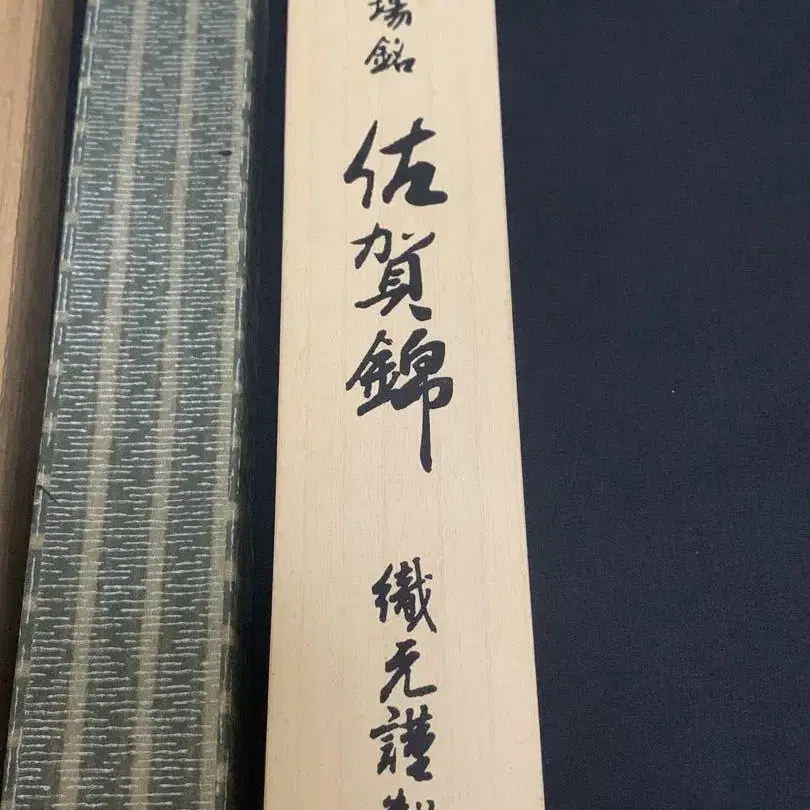 銘 佐賀錦 織元謹